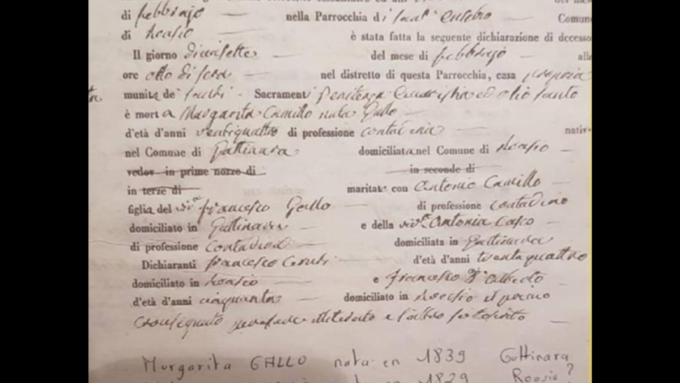 di febbrajo nella Parrocchia di Sant' Eusebio Comune
di Roasio è stata fatta la seguente dichiarazione di decesso
Il giorno diciasette del mese di febbrajo alle
ore otto di sera nel distretto di questa Parrocchia, casa propria
munita de' Santi Sacramenti Penitenza Eucaristia ed olio santo
è morta Margarita Camillo nata Gallo
d'età d'anni ventiquattro di professione contadina nativa
nel Comune di Gattinara domiciliata nel Comune di Roasio
vedov in prime nozze di in seconde di
in terze di maritata con Antonio Camillo
figlia del Francesco Gallo di professione contadino
domiciliato in Gattinara e della Antonia Caso
di professione contadina domiciliata in Gattinara
Dichiaranti Francesco d'età d'anni trentaquattro
domiciliato in Roasio e Francesco D'Alberto
d'età d'anni cinquanta domiciliato in Roasio il primo
consegnato illiterato e l'altro sottoscritto
Margarita GALLO nata en 1839 Gattinara
1829 Roasio?